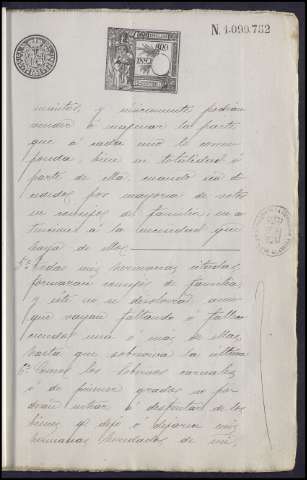 N. 1.099.732
1882
y únicamente podrán
vender ó enajenar la parte
que á cada una le corres
ponda, bien en totalidad ó
parte de ella, cuando sea de
cidido por mayoria de votos
en consejo de familia, en a
tencion á la necesidad que
haya de ello.
5.ª Todas mis hermanas citadas
formarán consejo de familia
y éste no se disolverá aun
que vayan faltando ó falle
ciendo una ó mas de ellas,
hasta que sobreviva la ultima
6.ª Como los sobrinos carnales
ó de primer grado no po
drán entrar á disfrutar de los
bienes q. dejo ó dejaren mis
hermanas heredados de mi,